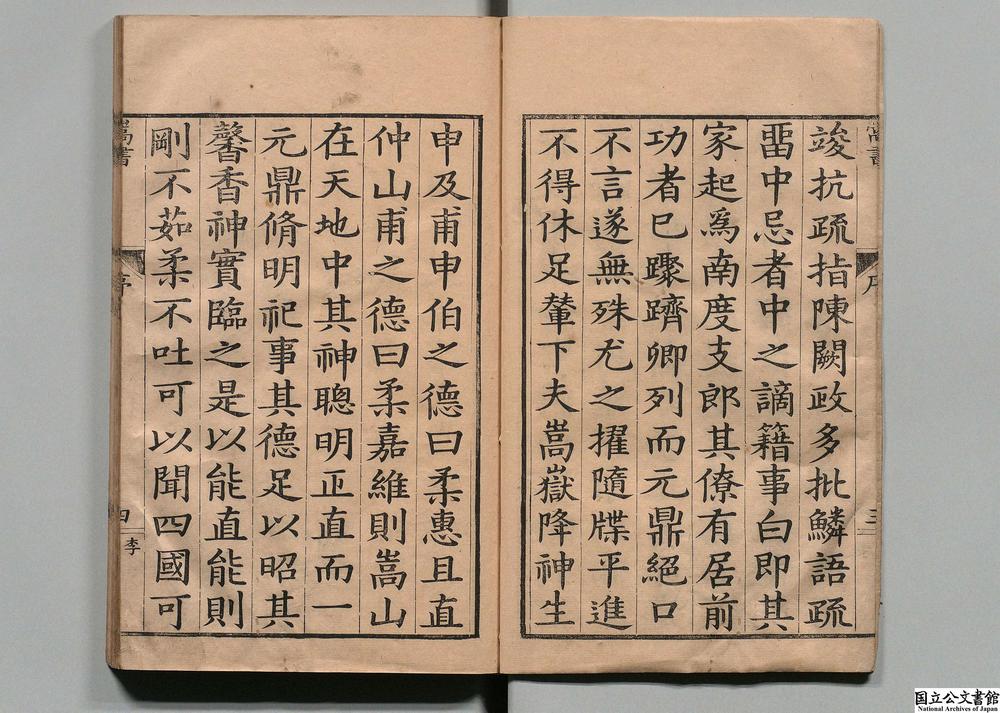 竣抗疏指陳闕政多批鱗語疏
畱中忌者中之謫籍事白即其
家起爲南度支郎其僚有居前
功者已驟躋卿列而元鼎絕口
不言遂無殊尤之擢隨牒平進
不得休足輦下夫嵩嶽降神生
嵩書
序
三
申及甫申伯之德曰柔惠且直
仲山甫之德曰柔嘉維則嵩山
在天地中其神聰明正直而一
元鼎脩明祀事其德足以昭其
馨香神實臨之是以能直能則
剛不茹柔不吐可以聞四國可
嵩書
序
四
李
国立公文書館
National Archives of Japan